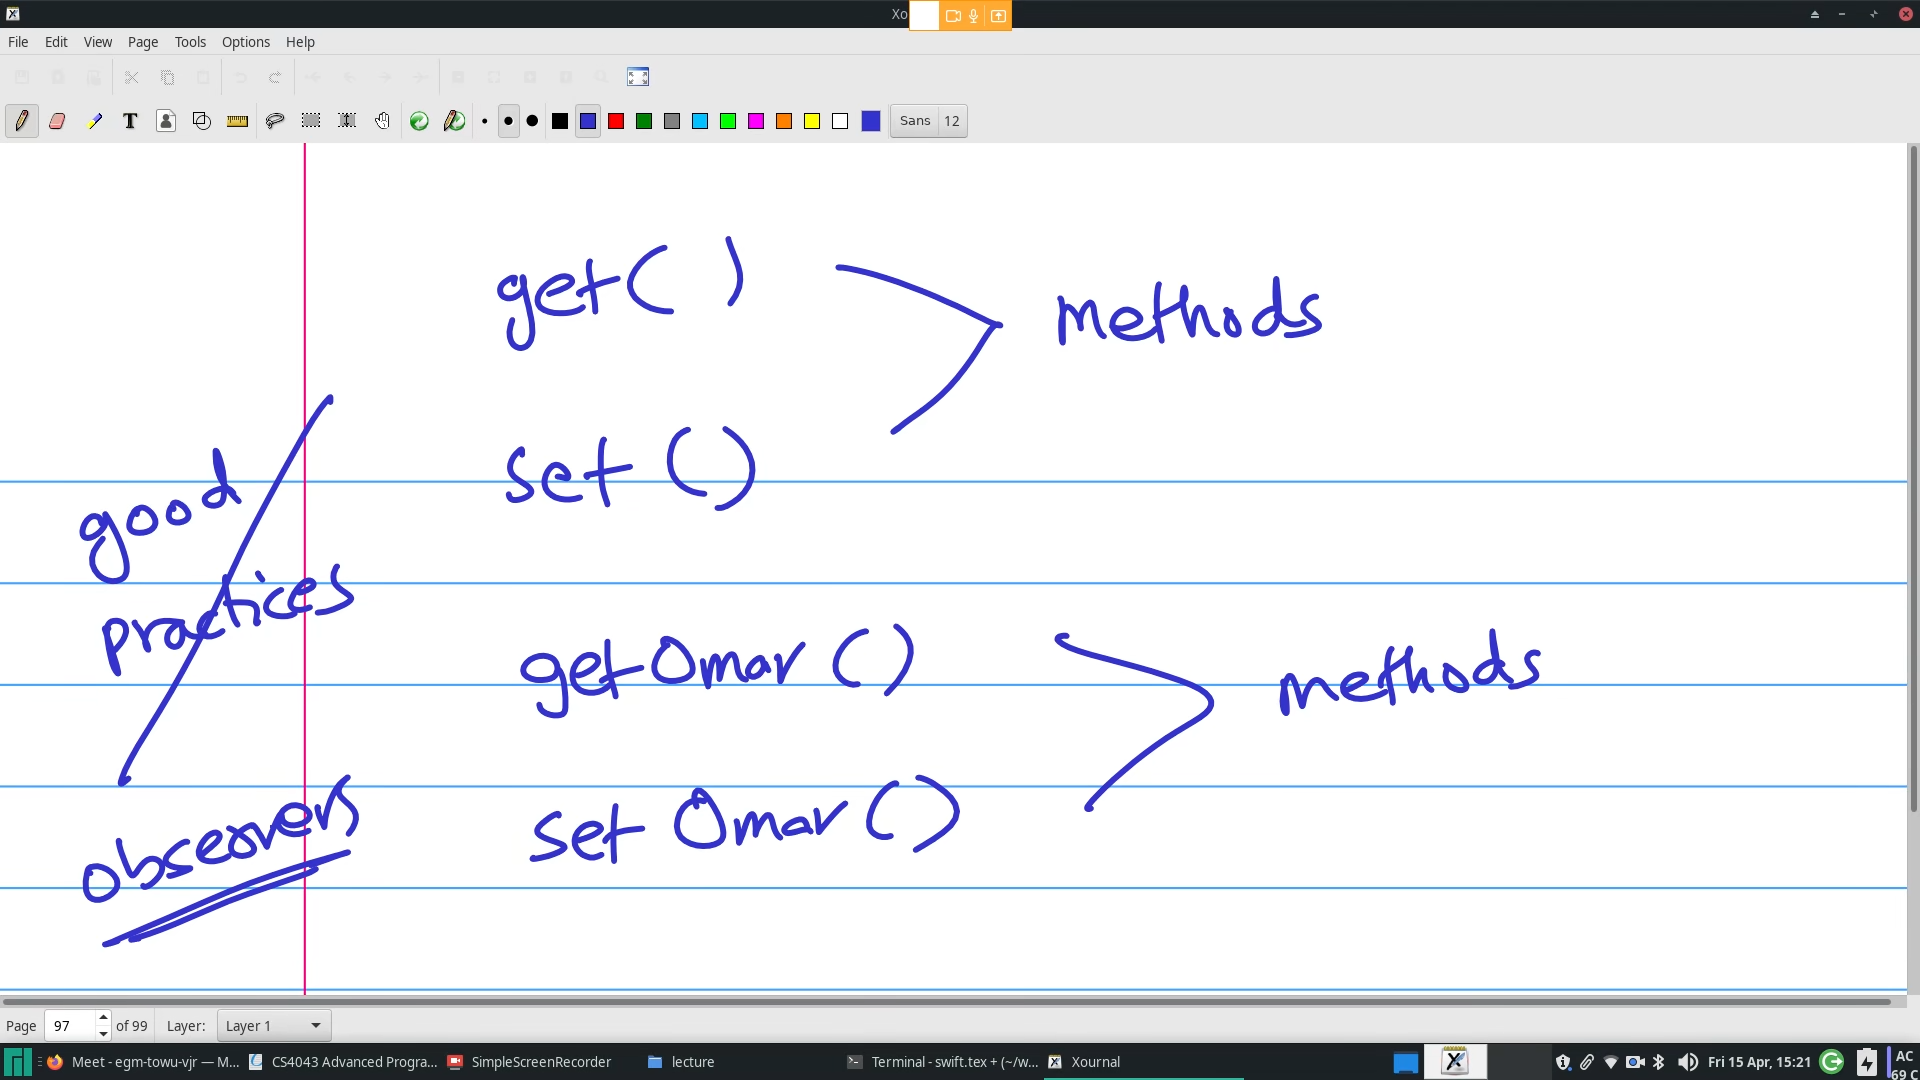 Xo
File Edit View Page Tools Options Help
T
Sans 12
get( )
methods
set ()
good
practices
getOmar ()
methods
set Omar ()
observers
Page 97 of 99 Layer: Layer 1
Meet - egm-towu-vjr — M... CS4043 Advanced Progra... SimpleScreenRecorder lecture Terminal - swift.tex + (~/w... Xournal Fri 15 Apr, 15:21 AC
69 C